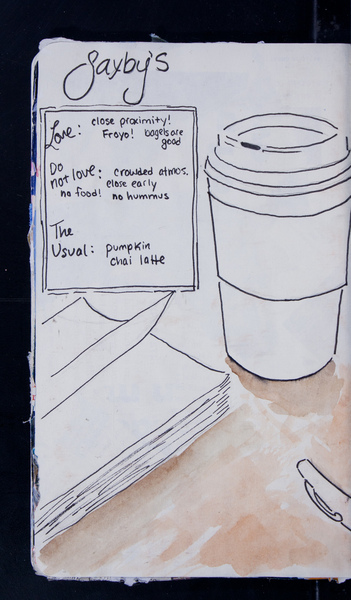 Saxby's
Love: close proximity!
Froyo! bagels are
good
Do
not love: crowded atmos.
close early
no food! no hummus
The
Usual: pumpkin
chai latte